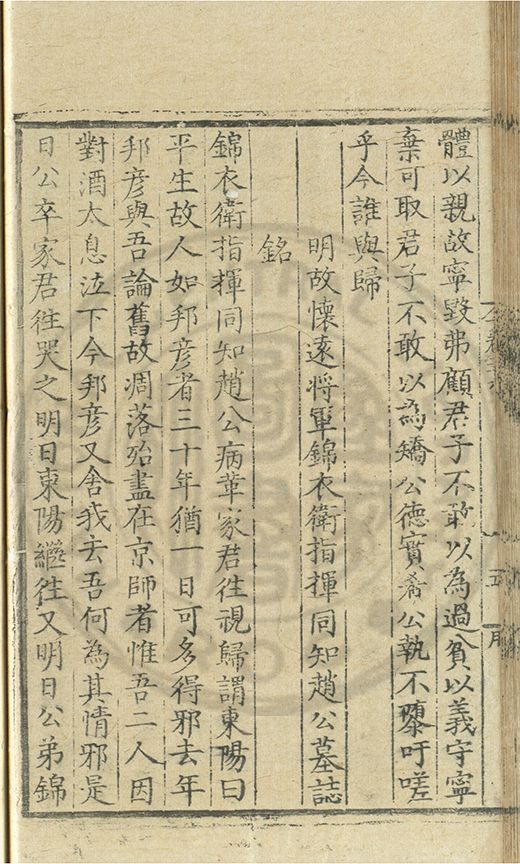 體以親故寧毀弗顧君子不敢以為過貧以義守寧
棄可取君子不敢以為矯公德實希公執不隳吁嗟
乎今誰與歸
明故懷遠將軍錦衣衛指揮同知趙公墓誌
銘
錦衣衛指揮同知趙公病革家君往視歸謂東陽曰
平生故人如邦彥者三十年猶一日可多得邪去年
邦彥與吾論舊故凋落殆盡在京師者惟吾二人因
對酒太息泣下今邦彥又舍我去吾何為其情邪是
日公卒家君往哭之明日東陽繼往又明日公弟錦